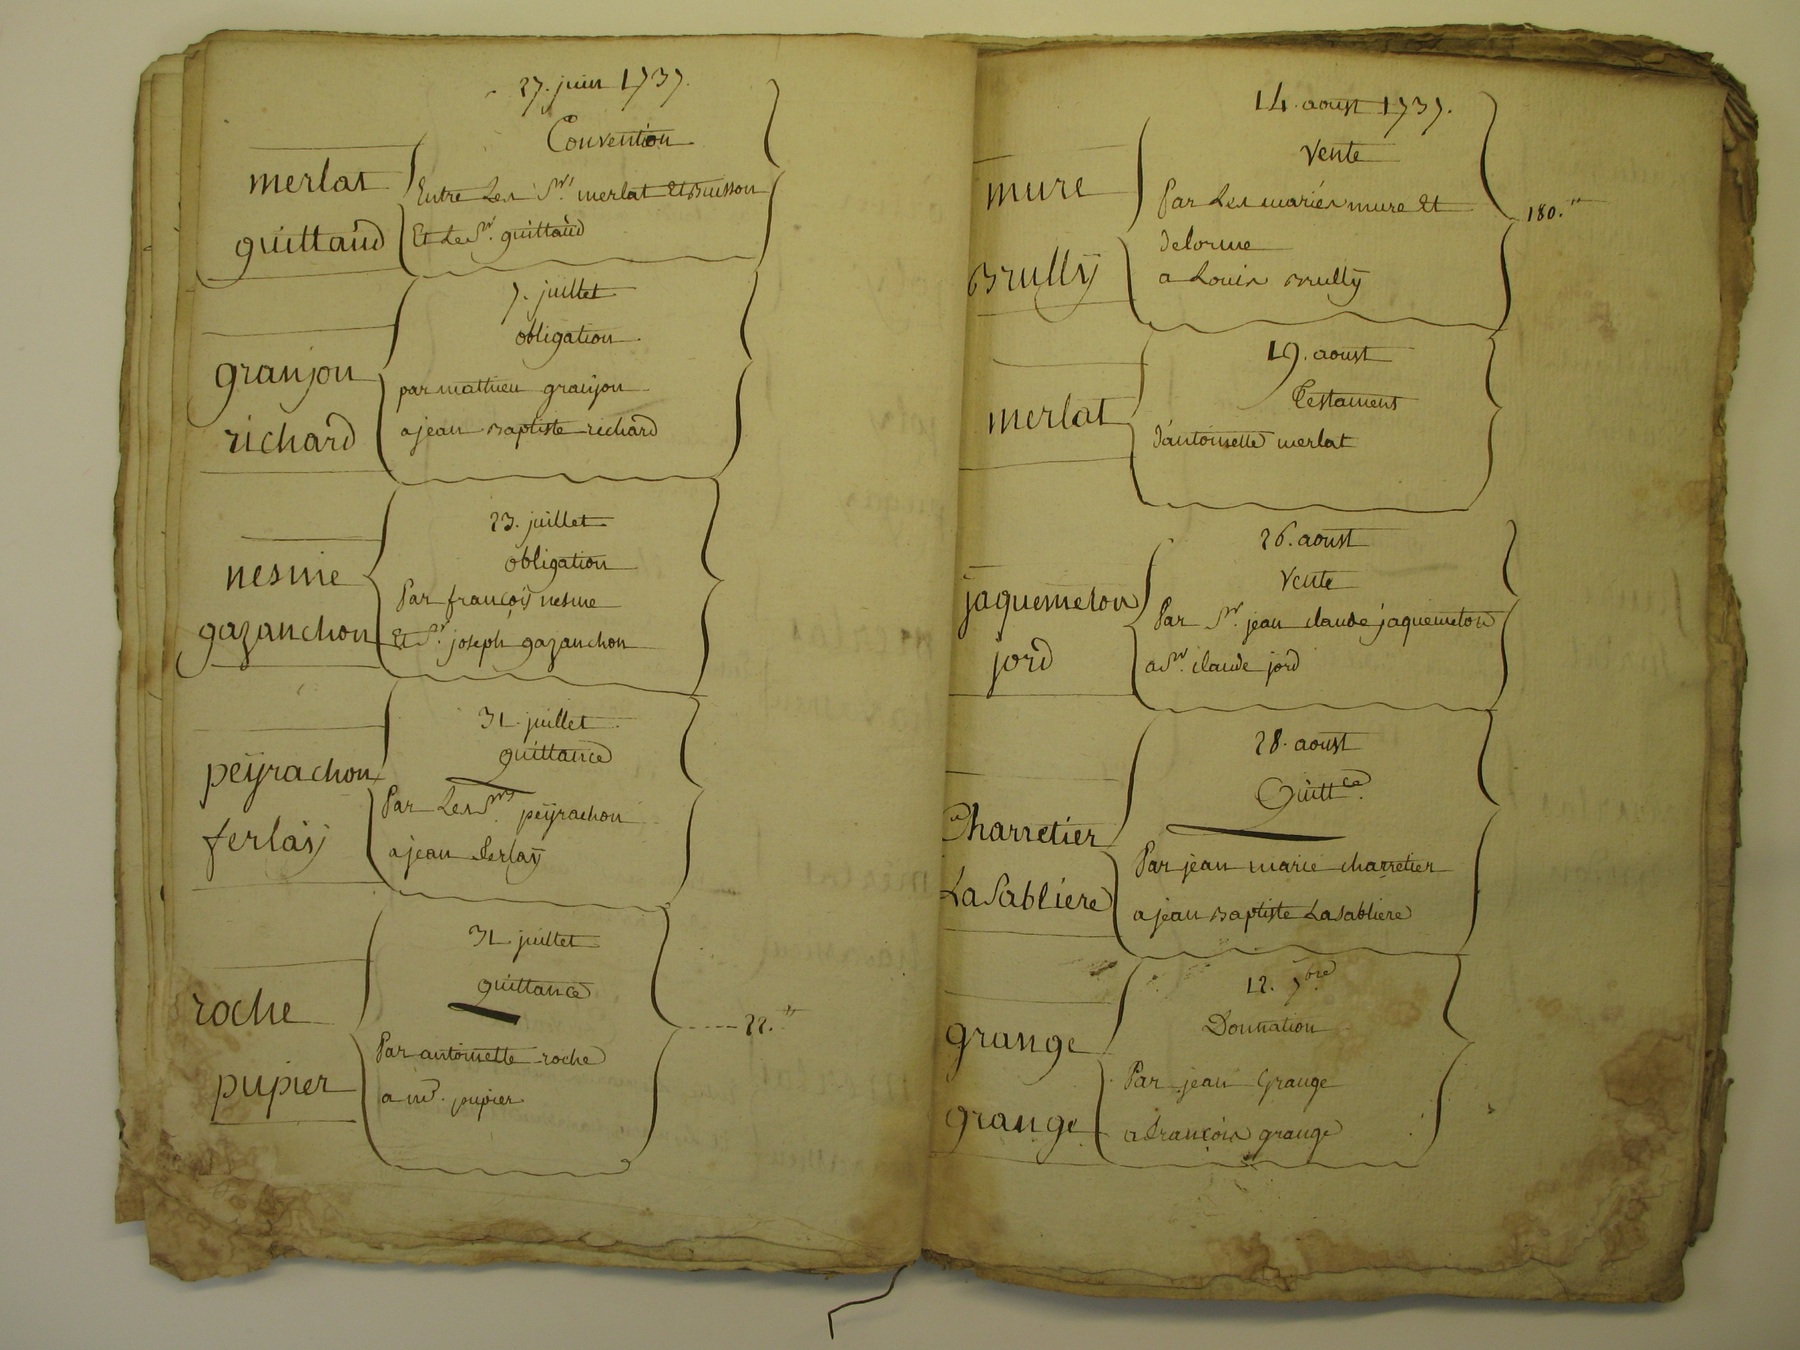 27. juin 1737.
Convention
merlat
guittaud
Entre Les Srs merlat Et Buisson
Et Le Sr. guittaud
7. juillet
obligation
granjon
richard
par mathieu granjon
a jean Baptiste richard
23. juillet
obligation
nesme
gazanchon
Par françois nesme
Et Sr. joseph gazanchon
31. juillet
quittance
peÿrachon
ferlaÿ
Par Les Srs. peÿrachon
a jean ferlaÿ
31. juillet
quittance
roche
pupier
22.tt
Par antoinette roche
a mr. pupier
14. aoust 1737.
Vente
mure
Brullÿ
Par Les mariés mure Et
delorme
a Louis Brullÿ
180.tt
19. aoust
Testament
merlat
d'antoinette merlat
26. aoust
Vente
jaquemeton
jord
Par Sr. jean claude jaquemeton
a Sr. claude jord
28. aoust
Quittce.
Charretier
La Sabliere
Par jean marie charretier
a jean Baptiste La Sabliere
12. 7bre
Donnation
grange
grange
Par jean Grange
a françois grange